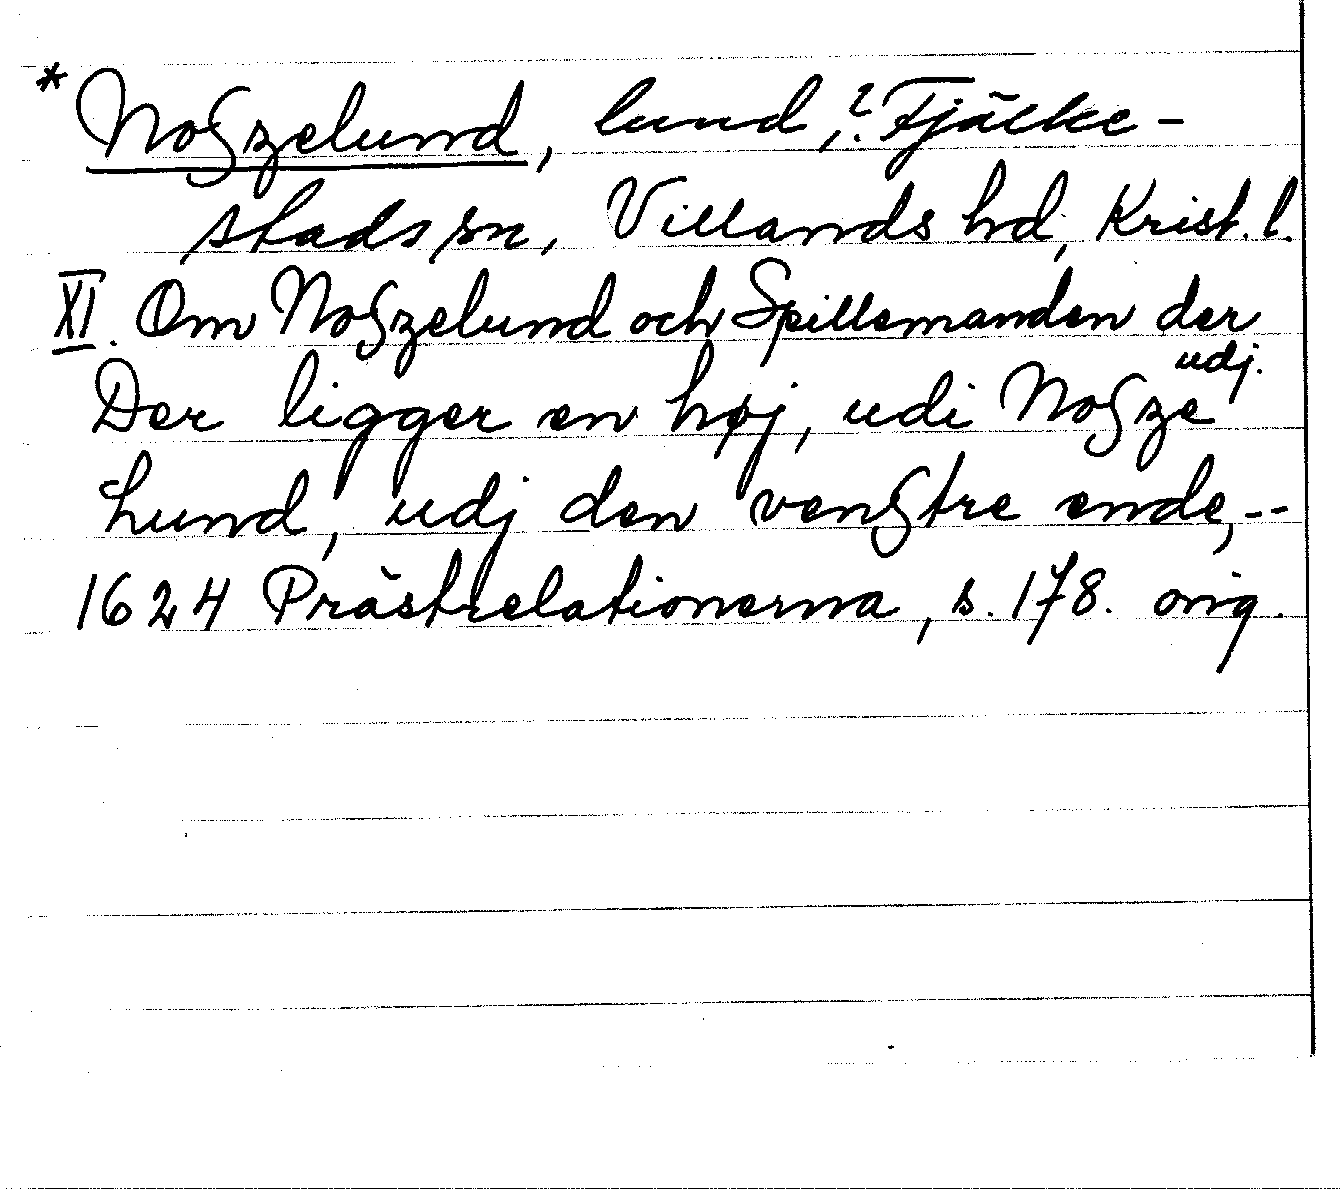 * Noszelund, lund, ? Fjälke-
stads sn, Villands hd, Krist. l.
XI. Om Noszelund och Spillemanden der
udj.
Der ligger en høj, udi Nosze
Lund, udj den venstre ende, --
1624 Prästrelationerna, s. 178. orig.